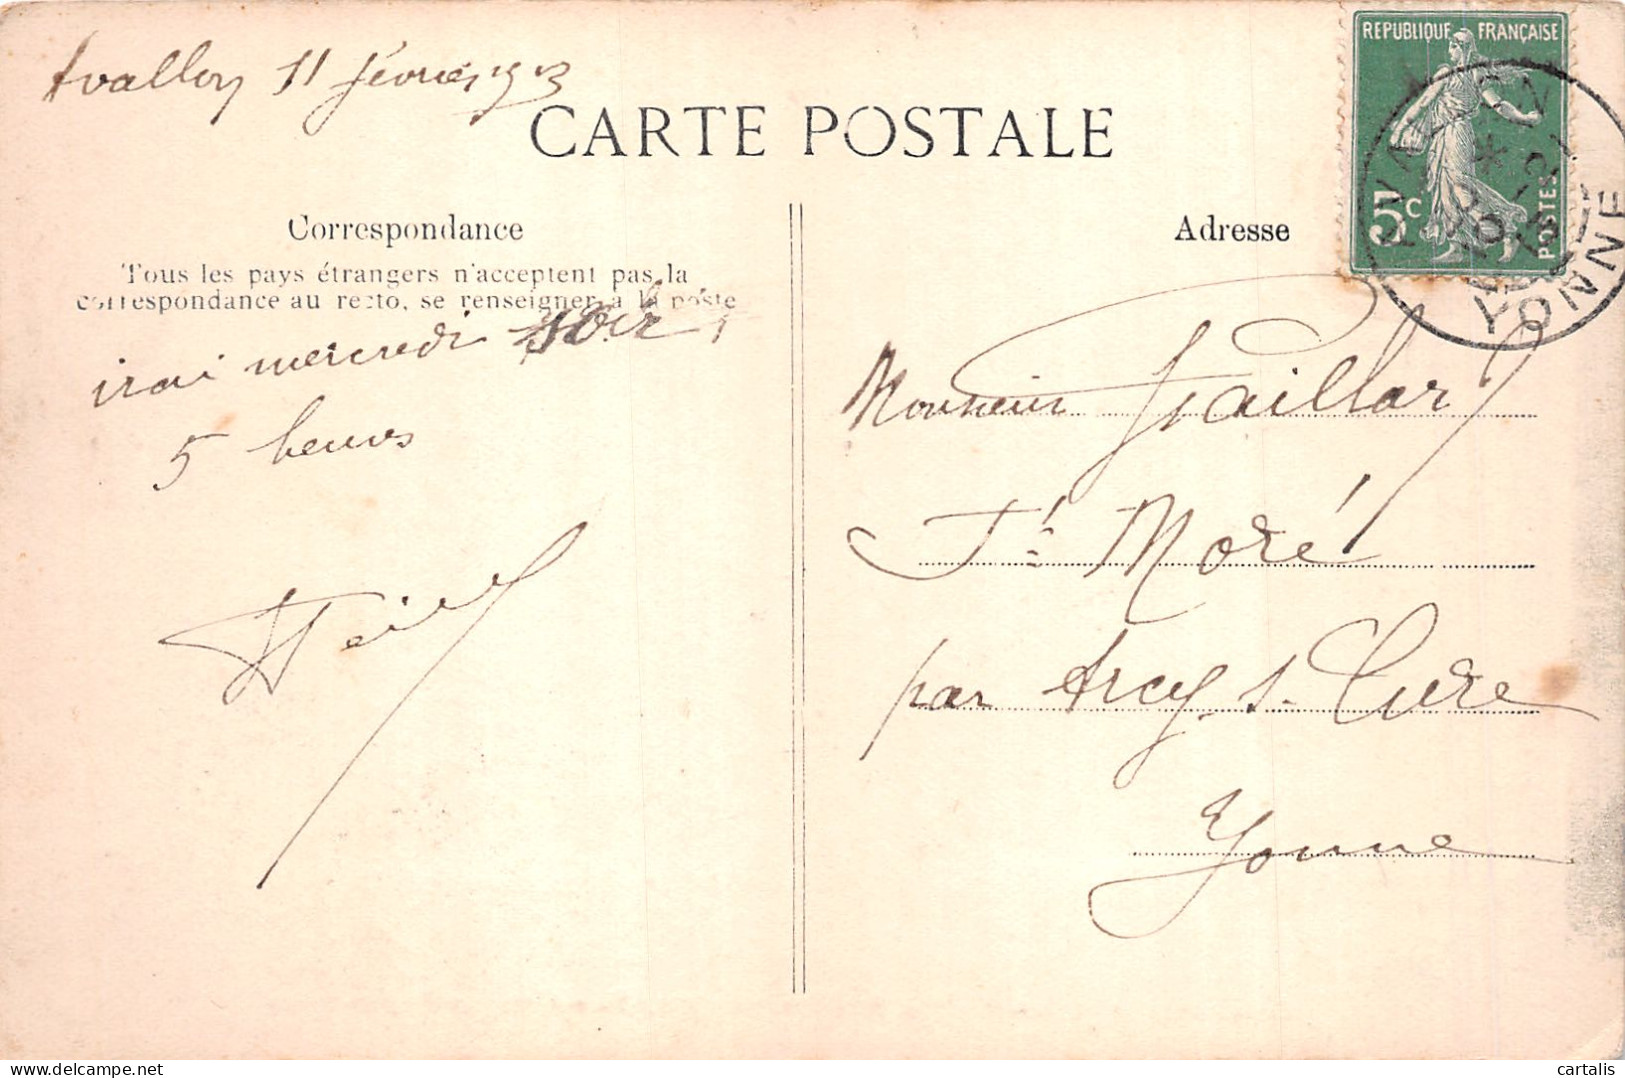 Avallon 11 février 1913
CARTE POSTALE
REPUBLIQUE FRANÇAISE
5c
POSTES
AVALLON
YONNE
Correspondance
Tous les pays étrangers n'acceptent pas la
correspondance au recto, se renseigner à la poste
irai mercredi soir
5 heures
Adresse
Monsieur Gaillard
St Moré
par Arcy s. Cure
Yonne
cartalis